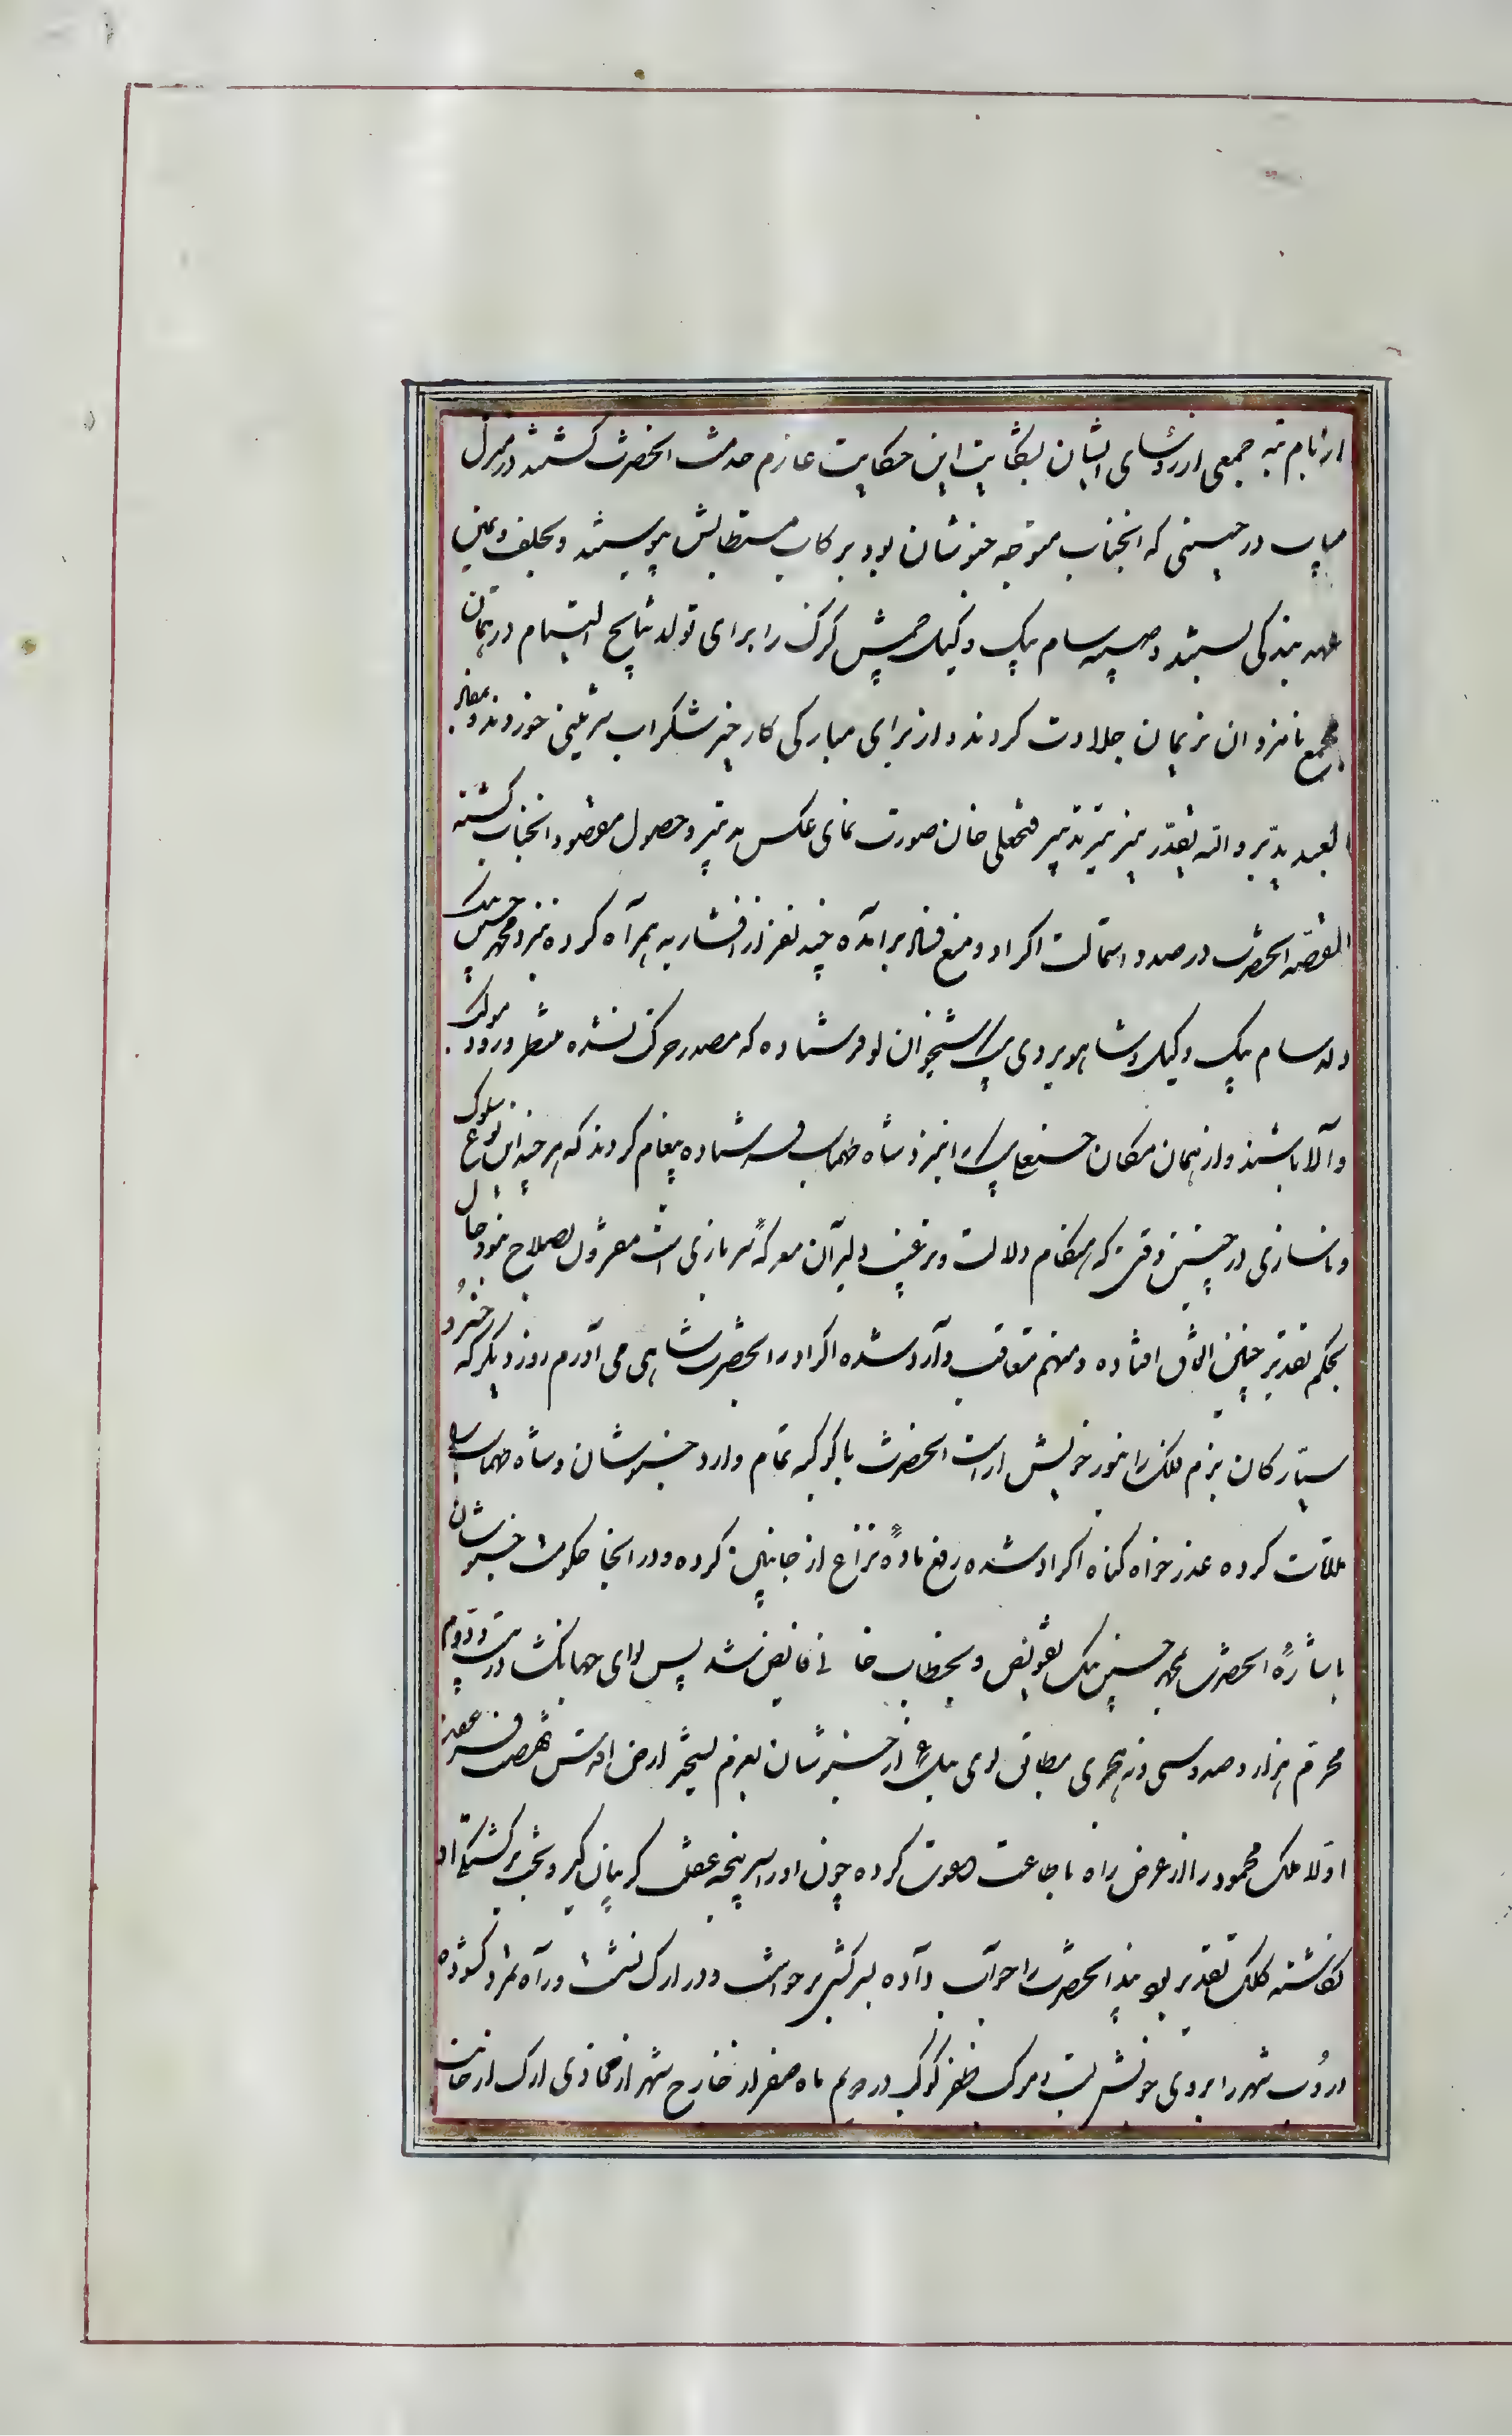 جمعی از رؤسای ایشان بشکایت این حکایت عازم خدمت آنحضرت گشتند در منزل
میاب در حینی که آنجناب متوجه خبوشان بود برکاب مستطابش پیوستند و بحلف و یمین
عهد بندگی بستند و صبیه سام بیک وکیل چمشگزک را برای تولد نتایج التیام در همان
مجمع نامزد آن نریمان جلادت کردند و از برای مبارکی کار خیر شکراب شیرینی خوردند
العبد یدبر و الله یقدر تدبیر فتحعلی خان صورت نمای عکس تدبیر و حصول مقصود آنجناب گشته
القصه آنحضرت در صدد استمالت اکراد و منع فساد برآمده چند نفر از افشاریه همراه کرده نزد محمد حسین بیک
ولد سام بیک وکیل و شاهویردی بیک شیخوانلو فرستاده که مصدر حرکت نشده منتظر ورود موکب
والا باشند و از همان مکان حسنعلی بیک را نزد شاه طهماسب فرستاده پیغام کردند که هر چند این نوع سلوک
و ناسازی در چنین وقتی که هنگام دلالت و ترغیب دلیران معرکه سربازی است مقرون بصلاح نبود حال
بحکم تقدیر چنین اتفاق افتاده و منهم متعاقب وارد شده اکراد را بحضرت شاهی می آورم روز دیگر که خسرو
سیارگان بزم فلک را بنور خویش آراست آنحضرت با کوکبه تمام وارد خبوشان و شاه طهماسب را
ملاقات کرده عذر خواه گناه اکراد شده رفع ماده نزاع از جانبین کرده و در آنجا حکومت خبوشان
باشاره آنحضرت بمحمد حسین بیک تفویض و بخطاب خانی فایض شد پس لوای جهانگشا در بیست و دویم
محرم هزار و صد و سی و نه هجری مطابق از خبوشان بعزم تسخیر ارض اقدس نهضت
اولا ملک محمود را از عرض راه باطاعت دعوت کرده چون او را سرپنجه غفلت گریبان گیر و بخت برگشتگی او
نگاشته کلک تقدیر بود آنحضرت را جواب داده بسرکشی برخواست و در ارک نشست و راه تمرد گشوده
دروب شهر را بروی خویش بست و موکب ظفر کوکب در دویم ماه صفر از خارج شهر از محاذی ارک از جانب